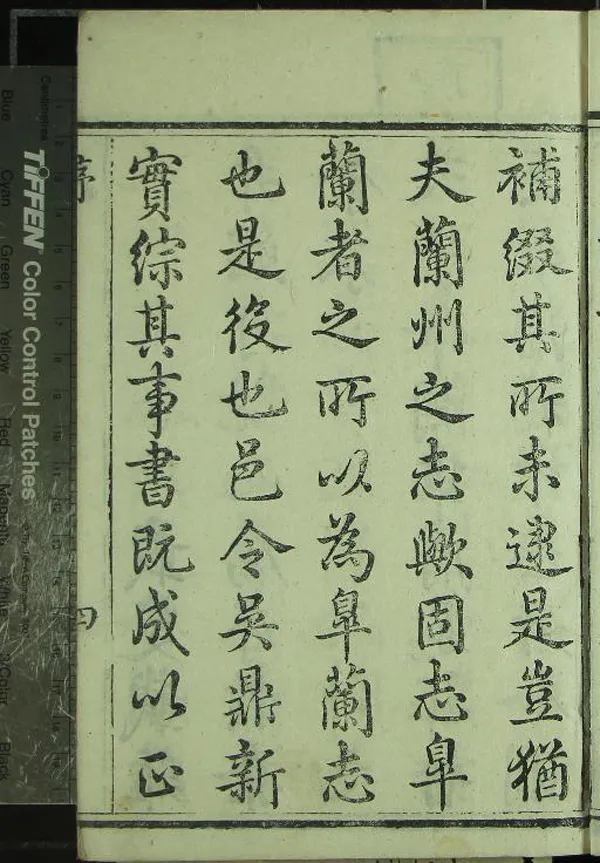 補綴其所未逮是豈猶
夫蘭州之志歟固志臯
蘭者之所以為臯蘭志
也是役也邑令吳鼎新
實綜其事書既成以正
序
四
Centimetres
TIFFEN Color Control Patches
Blue
Cyan
Green
Yellow
Red
Magenta
White
3/Color
Black